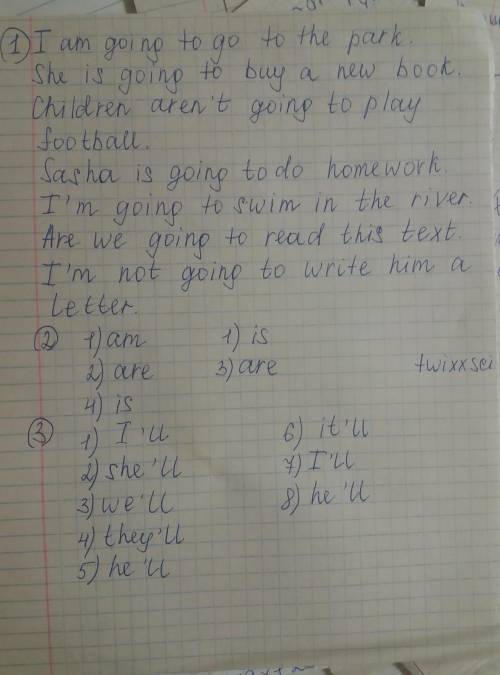 1 I am going to go to the park.
She is going to buy a new book.
Children aren't going to play
football.
Sasha is going to do homework.
I'm going to swim in the river.
Are we going to read this text.
I'm not going to write him a
letter.
2 1) am 1) is
2) are 3) are twixxsei
4) is
3 1) I'll 6) it'll
2) she'll 7) I'll
3) we'll 8) he'll
4) they'll
5) he'll